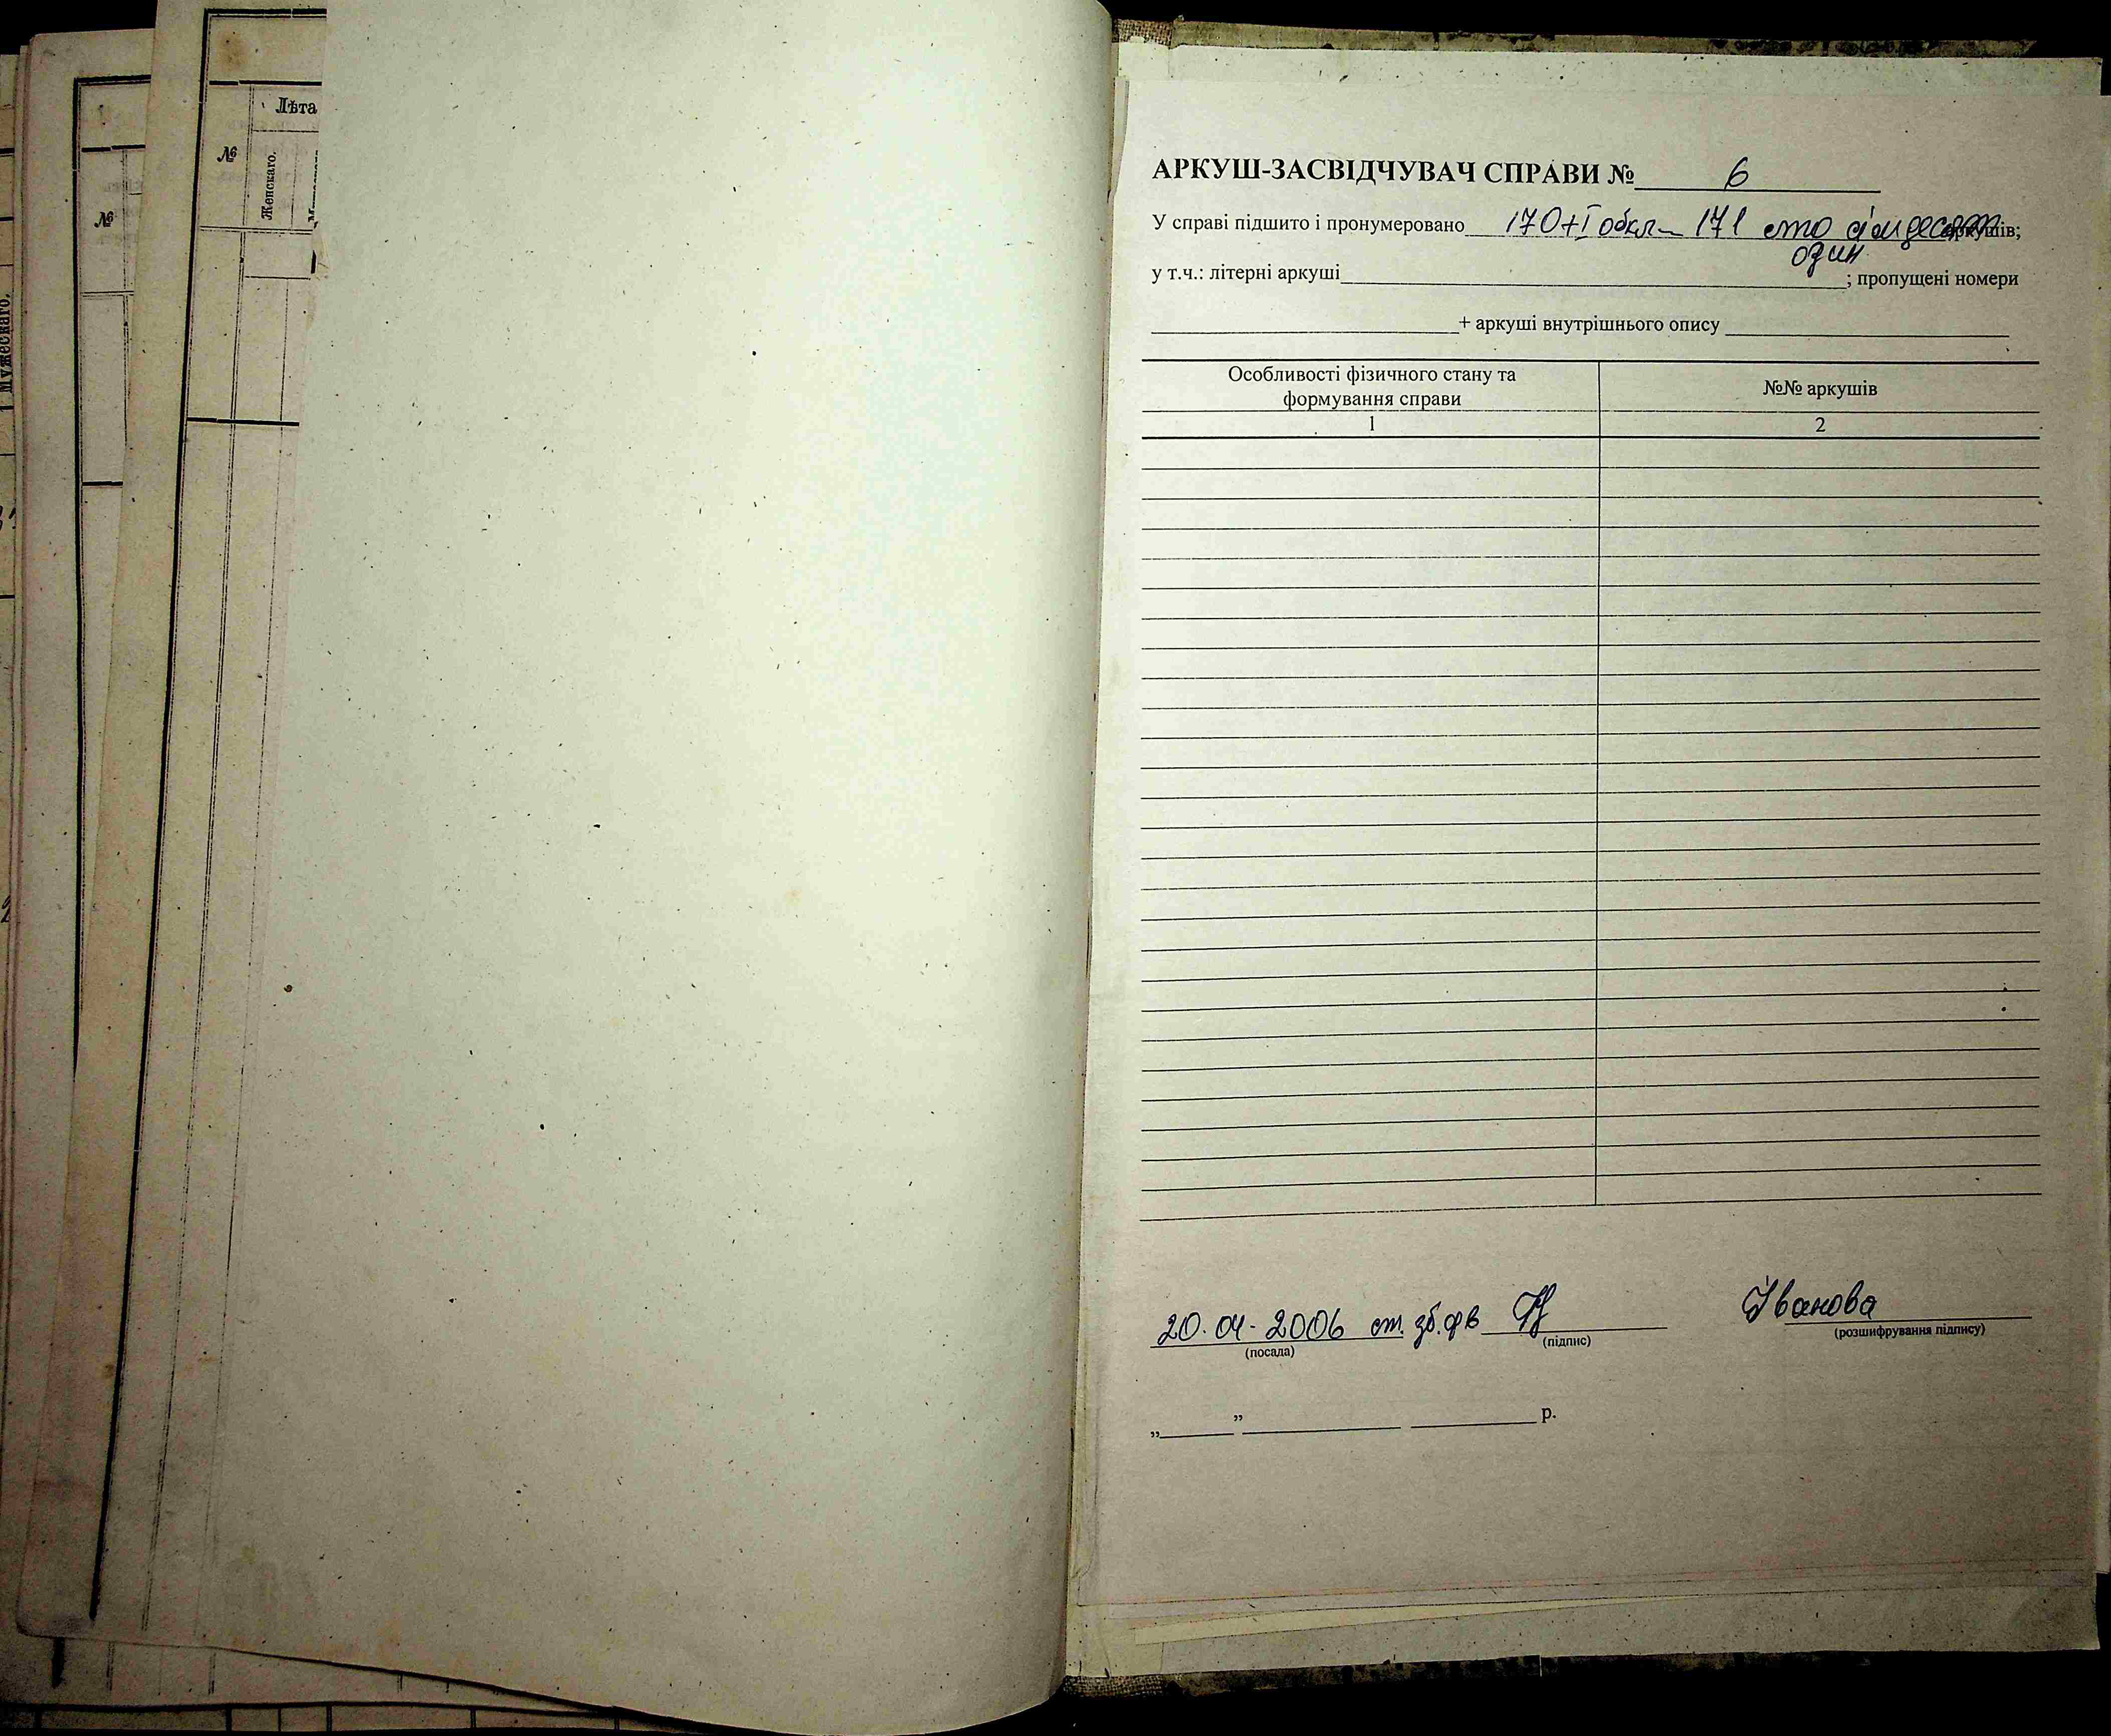 №
Лѣта
№
Женскаго.
Мужескаго.
АРКУШ-ЗАСВІДЧУВАЧ СПРАВИ № 6
У справі підшито і пронумеровано 170+I обкл– 171 сто сімдесят аркушів;
один
у т.ч.: літерні аркуші ; пропущені номери
+ аркуші внутрішнього опису
Особливості фізичного стану та
формування справи
№№ аркушів
1 2
20.04.2006 ст. зб. фв Іванова
(посада) (підпис) (розшифрування підпису)
„ ” р.